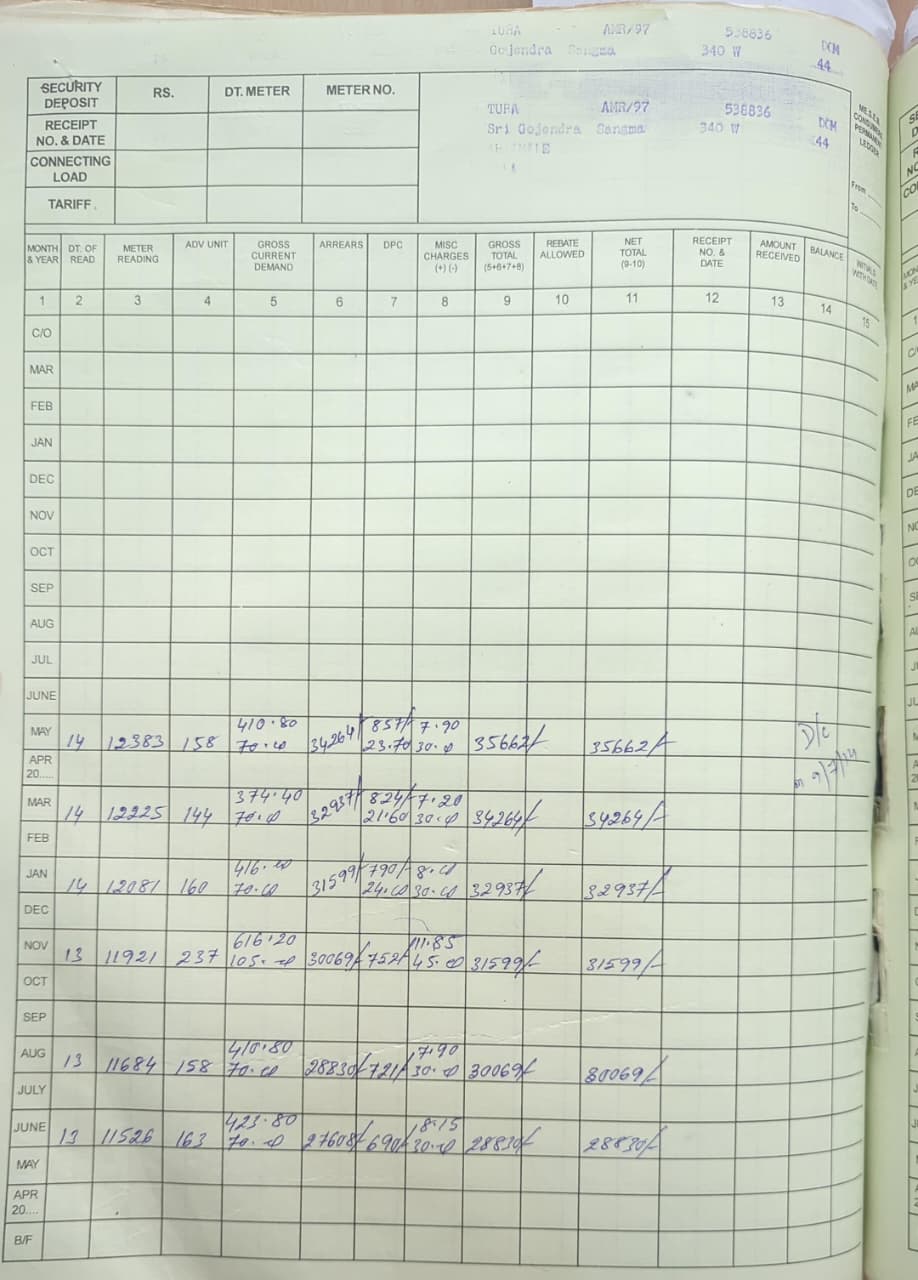 TURA AMR/97 538836 DCM
Gojendra Sangma 340 W 44
TURA AMR/97 538836 DCM
Sri Gojendra Sangma 340 W 44
SECURITY DEPOSIT RS. DT. METER METER NO.
RECEIPT NO. & DATE
CONNECTING LOAD
TARIFF.
CONSUMERS
PERMANENT
LEDGER
From
To
MONTH & YEAR DT. OF READ METER READING ADV UNIT GROSS CURRENT DEMAND ARREARS DPC MISC CHARGES (+) (-) GROSS TOTAL (5+6+7+8) REBATE ALLOWED NET TOTAL (9-10) RECEIPT NO. & DATE AMOUNT RECEIVED BALANCE INITIALS WITH DATE
1 2 3 4 5 6 7 8 9 10 11 12 13 14 15
C/O
MAR
FEB
JAN
DEC
NOV
OCT
SEP
AUG
JUL
JUNE
410.80 857/- 7.90
MAY 14 12383 158 70.00 34264/- 23.70 30.00 35662/- 35662/- D/c
APR 20..... on 9/7/14
374.40 824/- 7.20
MAR 14 12225 144 70.00 32937/- 21.60 30.00 34264/- 34264/-
FEB
416.00 790/- 8.00
JAN 14 12081 160 70.00 31599/- 24.00 30.00 32937/- 32937/-
DEC
616.20 11.85
NOV 13 11921 237 105.00 30069/- 752/- 45.00 31599/- 31599/-
OCT
SEP
410.80 7.90
AUG 13 11684 158 70.00 28830/- 721/- 30.00 30069/- 30069/-
JULY
423.80 8.15
JUNE 13 11526 163 70.00 27608/- 690/- 30.00 28830/- 28830/-
MAY
APR 20....
B/F